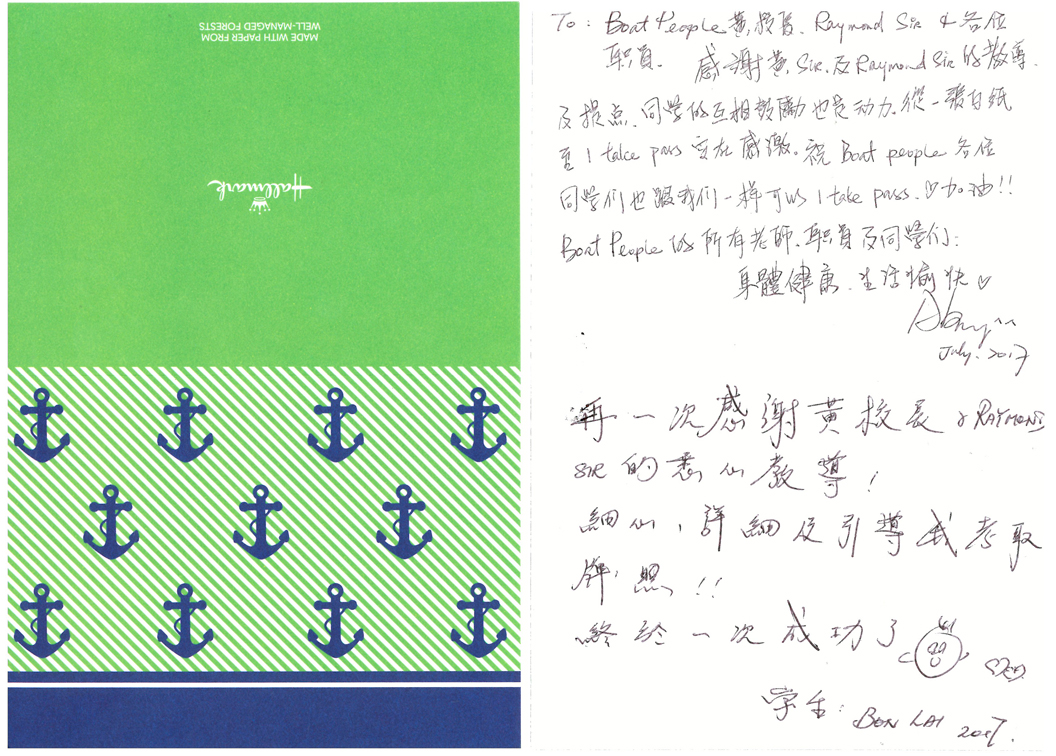 MADE WITH PAPER FROM
WELL-MANAGED FORESTS
Hallmark
To: Boat People 黃校長、Raymond Sir & 各位
职員. 感謝黃 Sir 及 Raymond Sir 的教導
及提点、同學的互相鼓勵也是动力. 從一張白紙
至 1 take pass 实在感激。祝 Boat people 各位
同學们也跟我们一样可以 1 take pass. ♡加油!!
Boat People 的所有老師、职員及同學们:
身體健康、生活愉快♡
July. 2017
再一次感謝黃校長 & RAYMOND
SIR 的悉心教導!
細心, 詳細及引導我考取
牌照!!
終於一次成功了
学生: BEN LAI 2017.